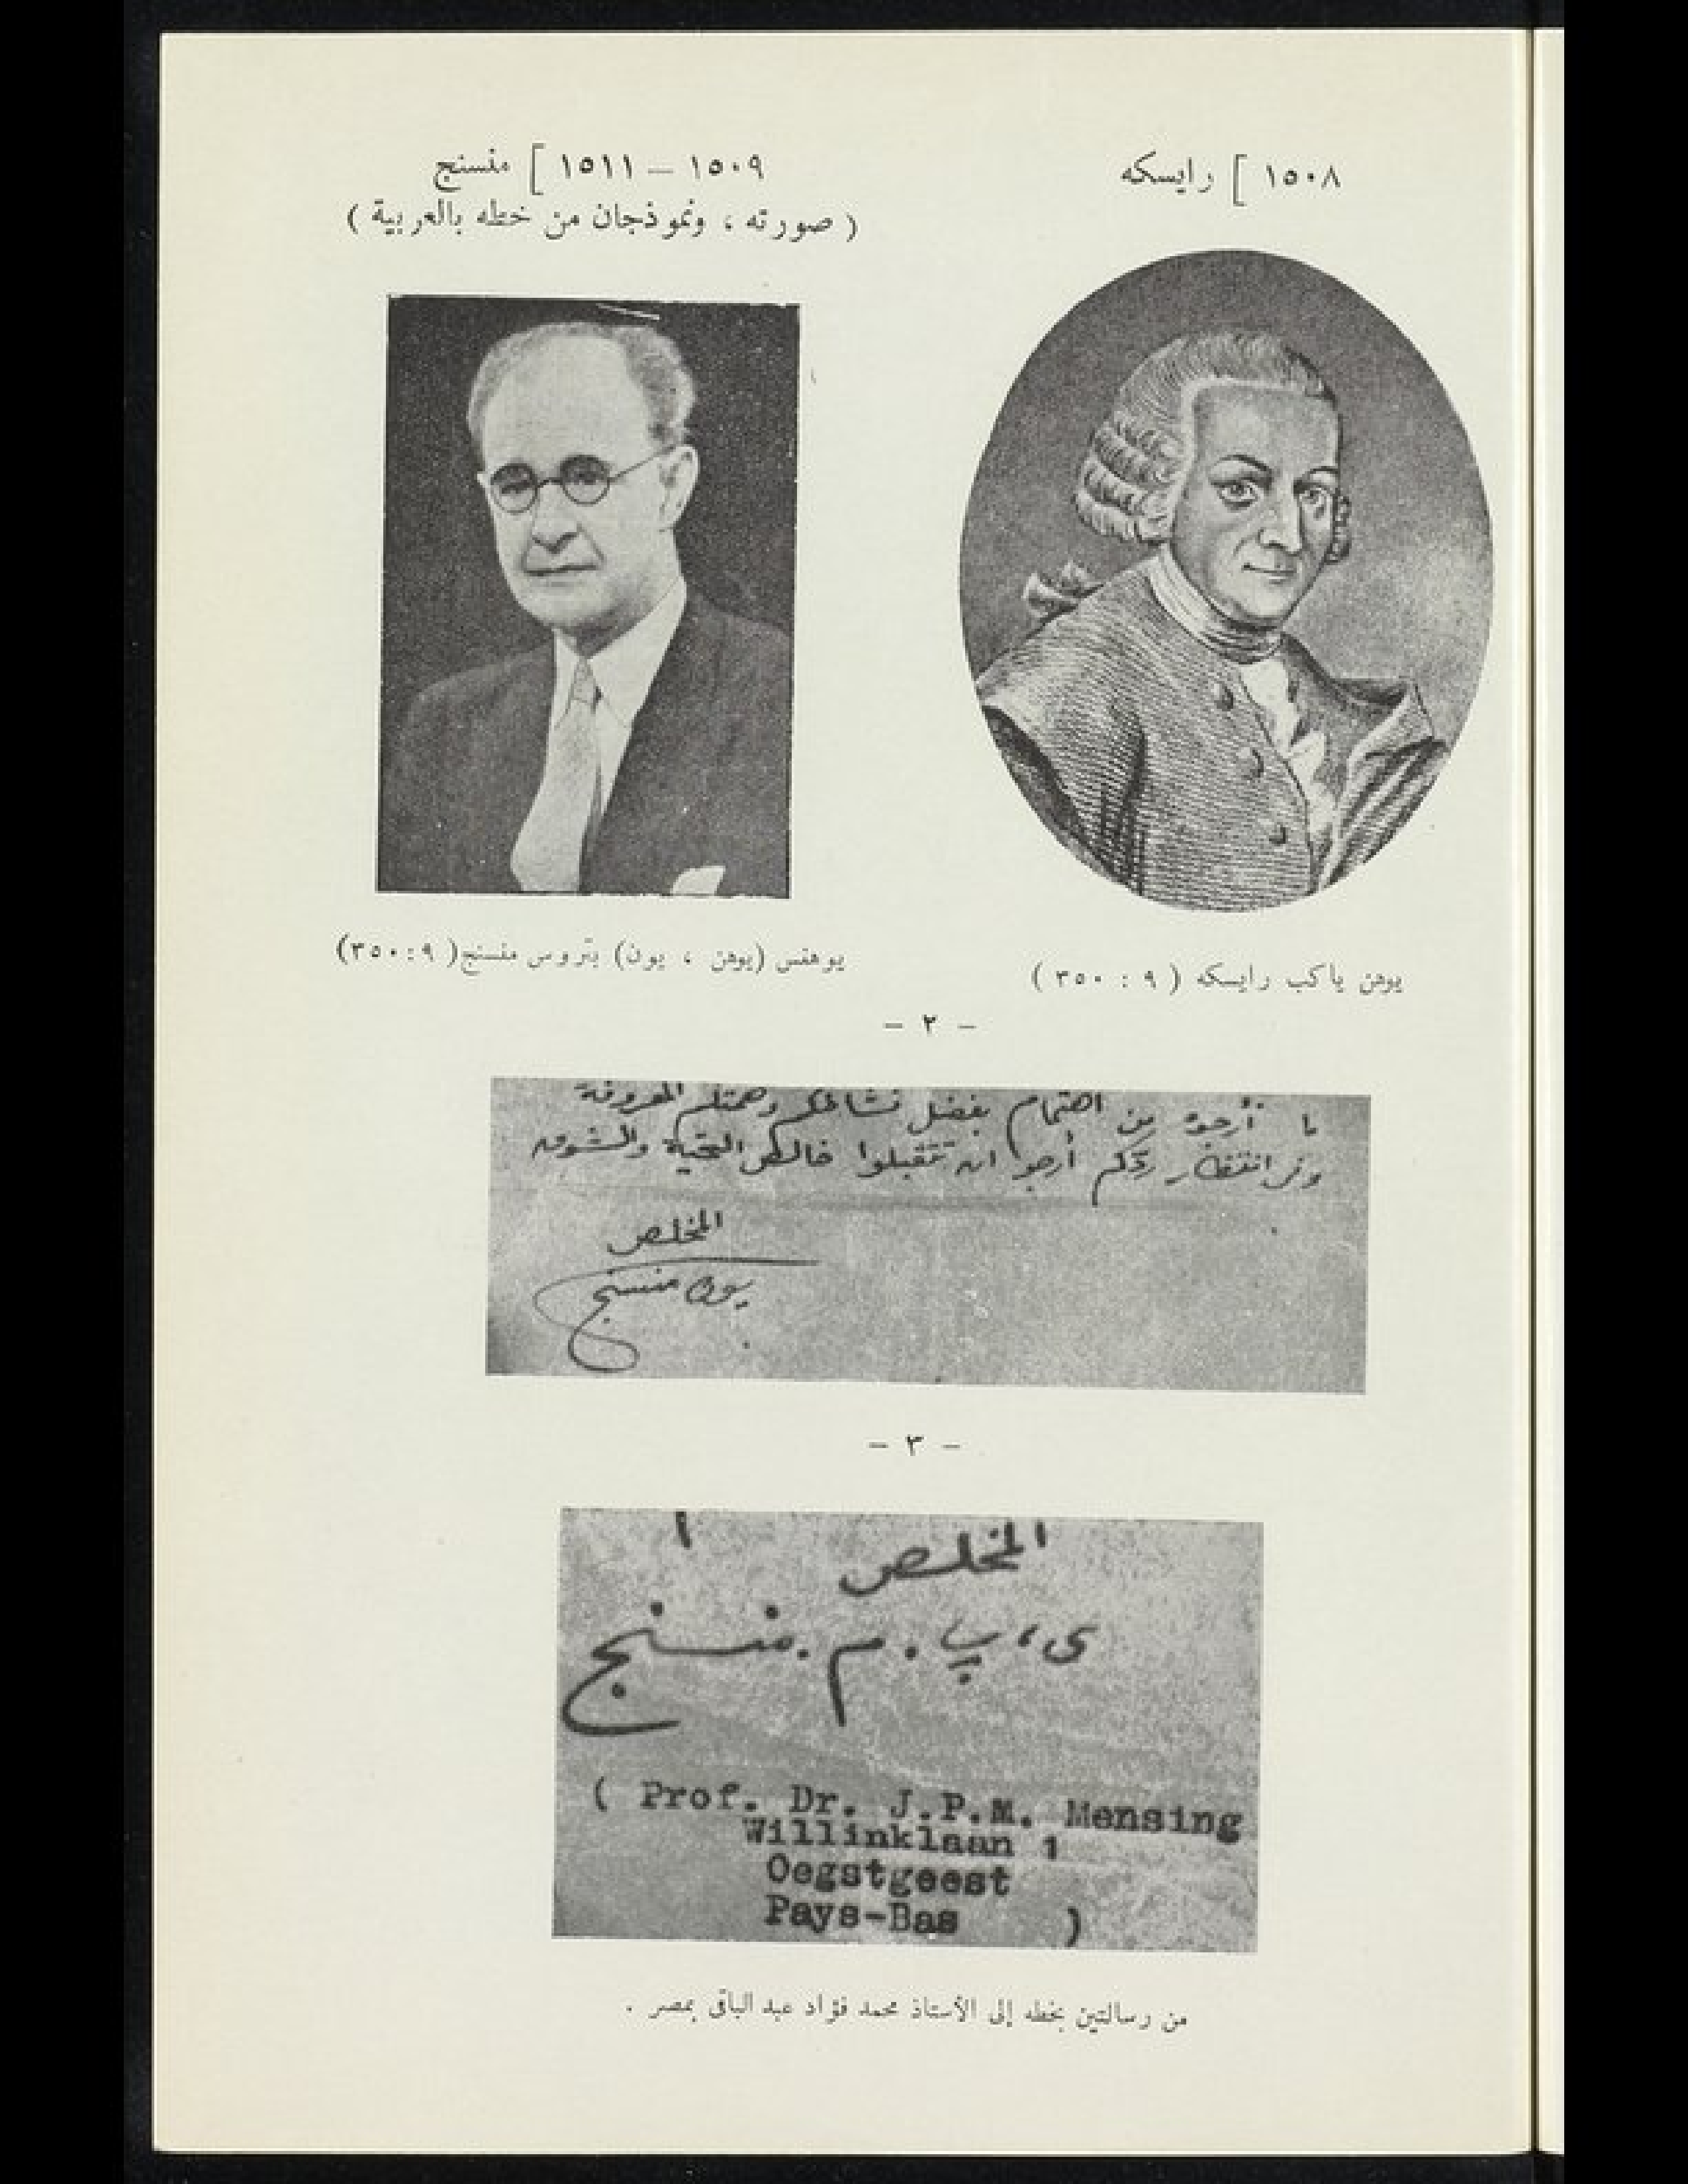 ١٥٠٨ ] رايسكه
١٥٠٩ – ١٥١١ ] منسنج
( صورته ، ونموذجان من خطه بالعربية )
يوهن ياكب رايسكه ( ٩ : ٣٥٠ )
يوهنس (يوهن ، يون) بتروس منسنج( ٩ : ٣٥٠)
– ٢ –
ما أرجوه من اهتمام بفضل نشاطكم وهمتكم المعروفة
وفى انتظار ردكم أرجو ان تتقبلوا خالص التحية والشوق
المخلص
يون منسنج
– ٣ –
المخلص
ى ، پ . م . منسنج
( Prof. Dr. J.P.M. Mensing
Willinklaan 1
Oegstgeest
Pays-Bas )
من رسالتين بخطه إلى الأستاذ محمد فؤاد عبد الباقى بمصر .